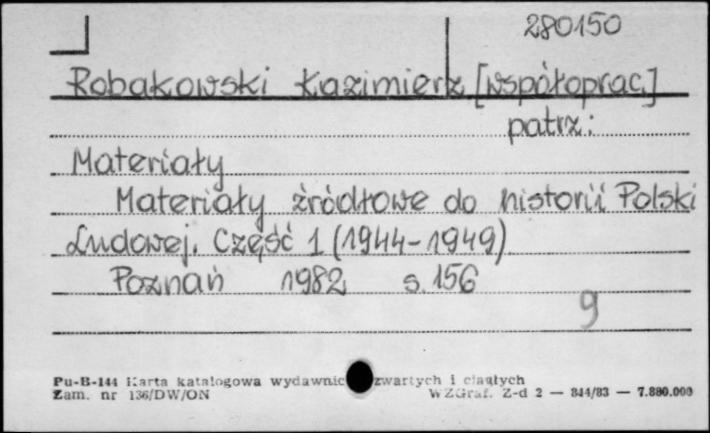 280150
Robakowski Kazimierz [współoprac.]
patrz:
Materiały
Materiały źródłowe do historii Polski
Ludowej. Część 1 (1944-1949)
Poznań 1982 s. 156
9
Pu-B-144 Karta katalogowa wydawnic zwartych i ciągłych
Zam. nr 136/DW/ON WZGraf. Z-d 2 — 844/83 — 7.880.000